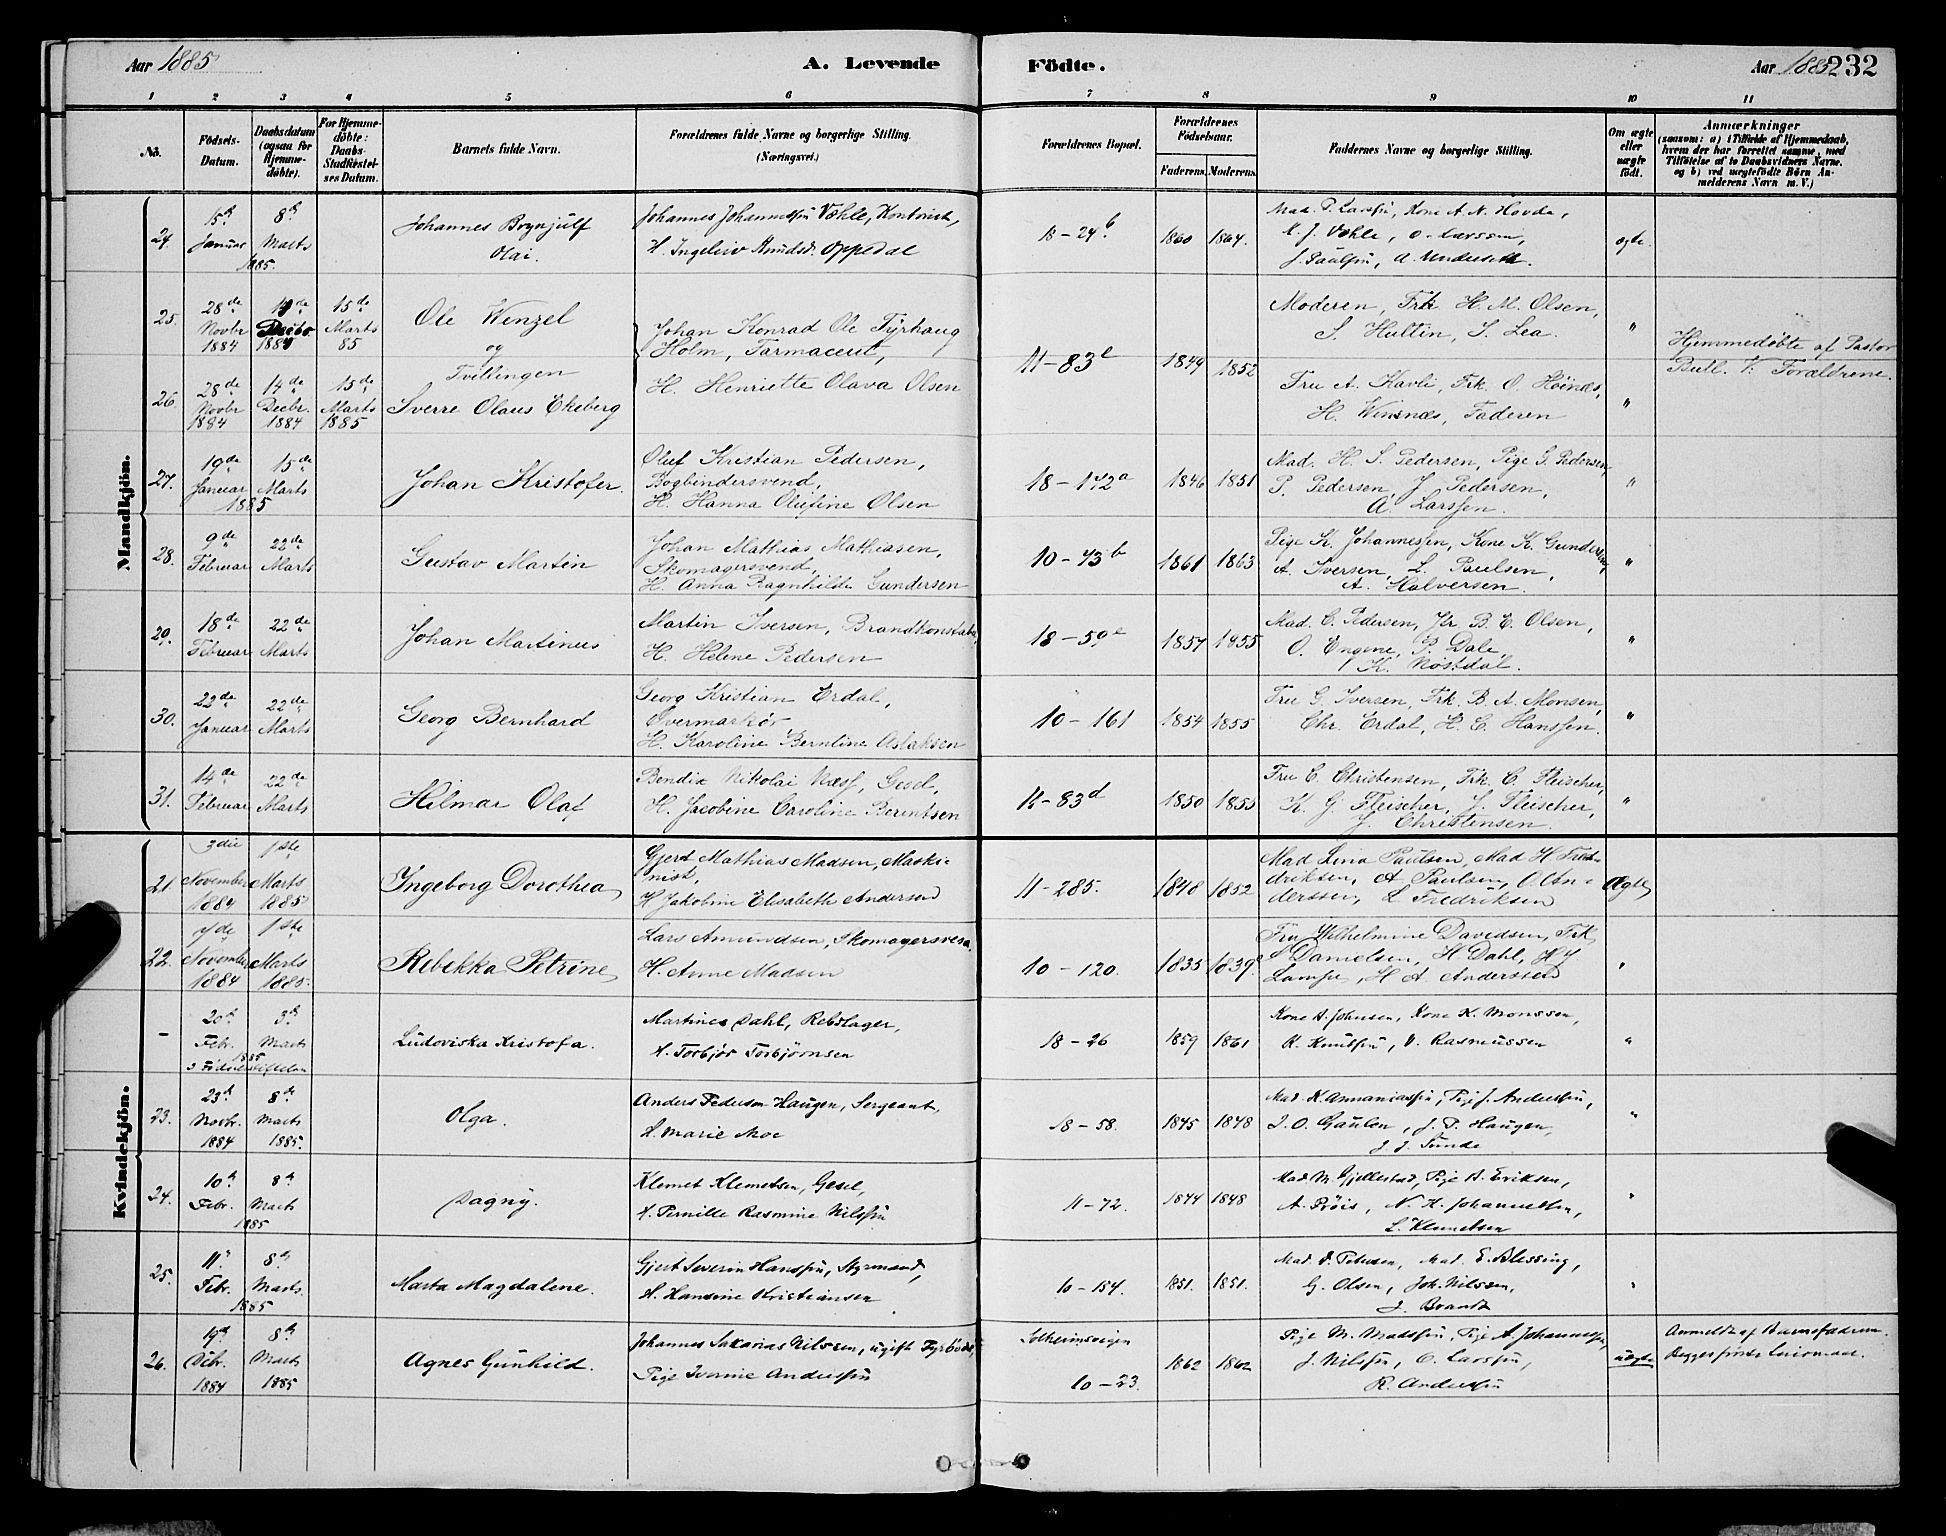 Aar 1885
A. Levende
Födte.
Aar 1885
232
1 2 3 4 5 6 7 8 9 10 11
No.
Födsels-
Datum.
Daabsdatum
(ogsaa for
Hjemme-
döbte).
For Hjemme-
döbte:
Daabs-
Stadfæstel-
ses Datum.
Barnets fulde Navn.
Forældrenes fulde Navne og borgerlige Stilling.
(Næringsvei.)
Forældrenes Bopæl.
Forældrenes
Födselsaar.
Faderens. Moderens.
Faddernes Navne og borgerlige Stilling.
Om ægte
eller
uægte
født.
Anmærkninger
(saasom: a) i Tilfælde af Hjemmedaab,
hvem der har forrettet samme, med
Tilföielse af to Daabsvidners Navne.
og b) ved uægtefödte Börn An-
melderens Navn m. V.)
Mandkjön.
24.
15d
Januar
8d
Marts
1885.
Johannes Brynjulf
Olai.
Johannes Væhle, Kontorist,
H. Ingeliv Knudsd. Oppedal
18-24b
1860 1864.
Mad. P. Larssen, Kone A. N. Hovda,
K. J. Væhle, O. Larssen,
ægte.
25.
28de
Novbr
1884
14de
Decbr.
1884
15de
Marts
85
Ole Wenzel
og
Tvillingen
Johan Konrad Ole Tyrhaug
Holm, Farmaceut,
H. Henriette Olava Olsen
11-83e
1849 1852
Moderen, Frk H. M. Olsen,
S. Hultin, S. Lea.
"
Hjemmedöbte af Pastor
Forældrene.
26.
28de
Novbr
1884
14de
Decbr.
1884
15de
Marts
1885
Sverre Olaus Ekeberg
Fru A. Kavli, Frk. O. Höinæs,
H. Winsnes, Faderen
"
27.
19de
Januar
15de
Marts
1885
Johan Kristofer.
Oluf Kristian Pedersen,
Bogbindersvend,
H. Hanna Olufine Olsen
18-172a
1846 1851
Mad. H. S. Pedersen, Pige G. Pedersen
P. Pedersen, J. Pedersen,
A. Larssen.
"
28.
9de
Februar
22de
Marts
Gustav Martin
Johan Mathias Mathiasen,
Skomagersvend,
H. Anna Ragnhilda Gundersen
10-73b
1861 1863
Pige K. Johannessen, Kone K. Gundersen,
A. Iversen, L. Paulsen,
A. Halversen.
"
29.
18de
Februar
22de
Marts
Johan Martinus
Martin Iversen, Brandkonstabel,
H. Helene Pedersen
18-59e
1857 1855
Mad. C. Pedersen, Jfr. B. E. Olsen,
O. Engene, P. Dale,
K. Nøstdal.
"
30.
22de
Januar
22de
Marts
Georg Bernhard
Georg Kristian Erdal,
Overmarkör
H. Karoline Berntine Aslaksen
10-161
1854 1855
Fru G. Iversen, Frk. B. A. Monsen,
Chr. Erdal, H. C. Hanssen.
"
31.
14de
Februar
22de
Marts
Hilmar Olaf
Bendix Nikolai Næss, Gesel,
H. Jacobine Caroline Berentsen
11-83d
1850 1855
Fru C. Christensen, Frk. C. Fleischer,
K. G. Fleischer, J. Fleischer,
J. Christensen.
"
Kvindekjön.
21.
3die
November
1884
1ste
Marts
1885
Ingeborg Dorothea
Gjert Mathias Madsen, Maski-
nist,
H Jakobine Elisabeth Andersen
11-285.
1848 1852
Mad Lina Paulsen, Mad H Fre-
driksen, A Paulsen, O. An-
derssen, L Fredriksen
Ægte
22.
7de
November
1884
1ste
Marts
1885.
Rebekka Petrine
Lars Amundsen, Skomagersvend,
H. Anne Madsen
10-120.
1835 1839.
Fru Wilhelmine Davidsen, Frk
S Danielsen, H Dahl,
H A. Anderssen
"
-
20d
Febr.
3d
Marts
1885
i Födselsstiftelsen
Ludoviska Kristofa.
Martines Dahl, Rebslager,
H. Torbjør Torbjørnsen
18-26
1859 1861
Kone A. Johnsen, Kone K. Monssen,
K. Knutsen, V. Rasmussen
"
23.
23d
Novbr.
1884
8de
Marts
1885.
Olga.
Anders Pedersen Haugen, Sergeant,
H. Marie Moe
18-58.
1845 1848
Mad. K. Annaniassen, Pige J. Anderssen,
J. O. Gaulen, J. P. Haugen,
J. J. Tunde
"
24.
10d
Febr.
8d
Marts
1885
Dagny.
Klemet Klemetsen, Gesel,
H. Pernille Rasmine Nilssen
11-72.
1844 1848
Mad. M. Gjellestad, Pige A. Eriksen,
A. Prøis, N. H. Johannessen,
L. Klemetsen
"
25.
11"
Febr.
8d
Marts.
1885
Marta Magdalene.
Gjert Severin Hanssen, Styrmand,
H. Hansine Kristiansen
10-154.
1851. 1851.
Mad. V. Petersen, Mad. E. Blessing,
G. Olsen, Joh. Nilssen,
J. Brandt
"
26.
Debr.
1884
8d
Marts
1885
Agnes Gunhild.
Johannes Sakarias Nilssen, ugift Fyrbøder,
Pige Ivernie Anderssen
Solheimsveien
10-23.
1862 1862
Pige M. Madssen, Pige A. Johannessen,
J. Nilssen, O. Larssen,
R. Anderssen
uægte
Anmeldt af Barnefaderen.
Begges første Leiermaal.